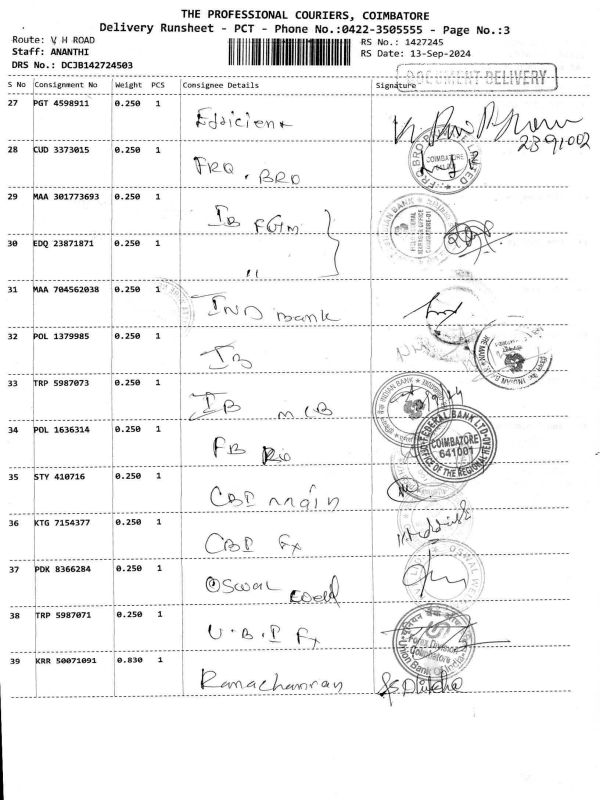 THE PROFESSIONAL COURIERS, COIMBATORE
Delivery Runsheet - PCT - Phone No.:0422-3505555 - Page No.:3
Route: V H ROAD
RS No.: 1427245
Staff: ANANTHI
RS Date: 13-Sep-2024
DRS No.: DCJB142724503
DOCUMENT DELIVERY
S No Consignment No Weight PCS Consignee Details Signature
27 PGT 4598911 0.250 1 Efficient
2391002
28 CUD 3373015 0.250 1 FRQ . BRO
COIMBATORE
29 MAA 301773693 0.250 1 IB FGTM
30 EDQ 23871871 0.250 1 "
31 MAA 704562038 0.250 1 IND bank
32 POL 1379985 0.250 1 IB
33 TRP 5987073 0.250 1 IB MCB
INDIAN BANK
34 POL 1636314 0.250 1 FB RO
FEDERAL BANK LTD
COIMBATORE
641001
OFFICE OF THE REGIONAL HEAD
35 STY 410716 0.250 1 CBI Main
36 KTG 7154377 0.250 1 CBI Fx
37 PDK 8366284 0.250 1 OSWAL
38 TRP 5987071 0.250 1 U.B.I Fx
Forex Division
Coimbatore
Union Bank Of India
39 KRR 50071091 0.830 1 Ramachanran